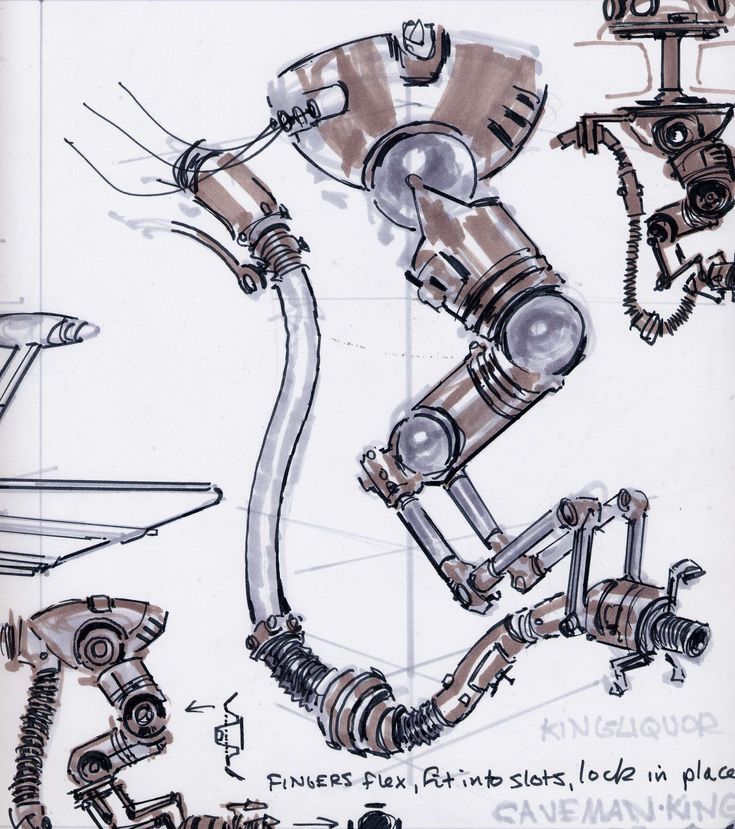 KINGLIQUOR
FINGERS flex, fit into slots, lock in place
CAVEMAN·KING